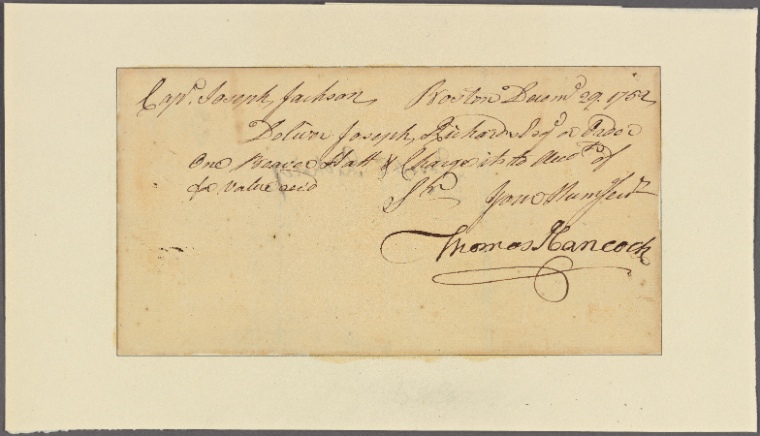 Capt. Joseph Jackson, Boston Decemr. 29. 1752
Deliver Joseph Richards Esqr. or Order
One Beaver Hatt & Charge it to Accot. of
for Value recd Sr. Your Hum Servt.
Thomas Hancock